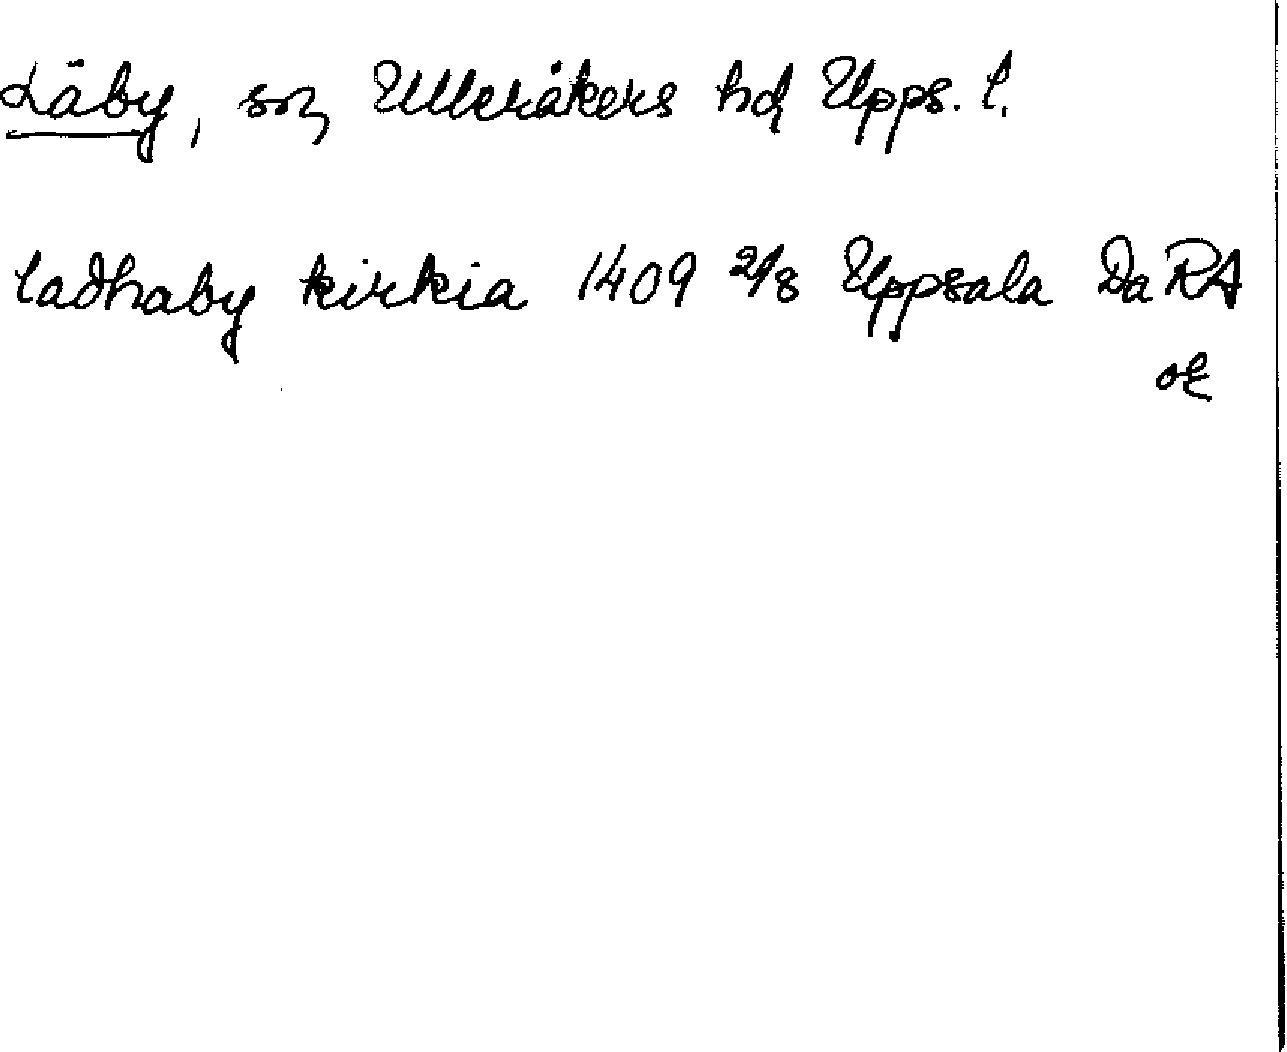 Läby, sn, Ulleråkers hd Upps. l.
ladhaby kirkia 1409 2/8 Uppsala Da RA